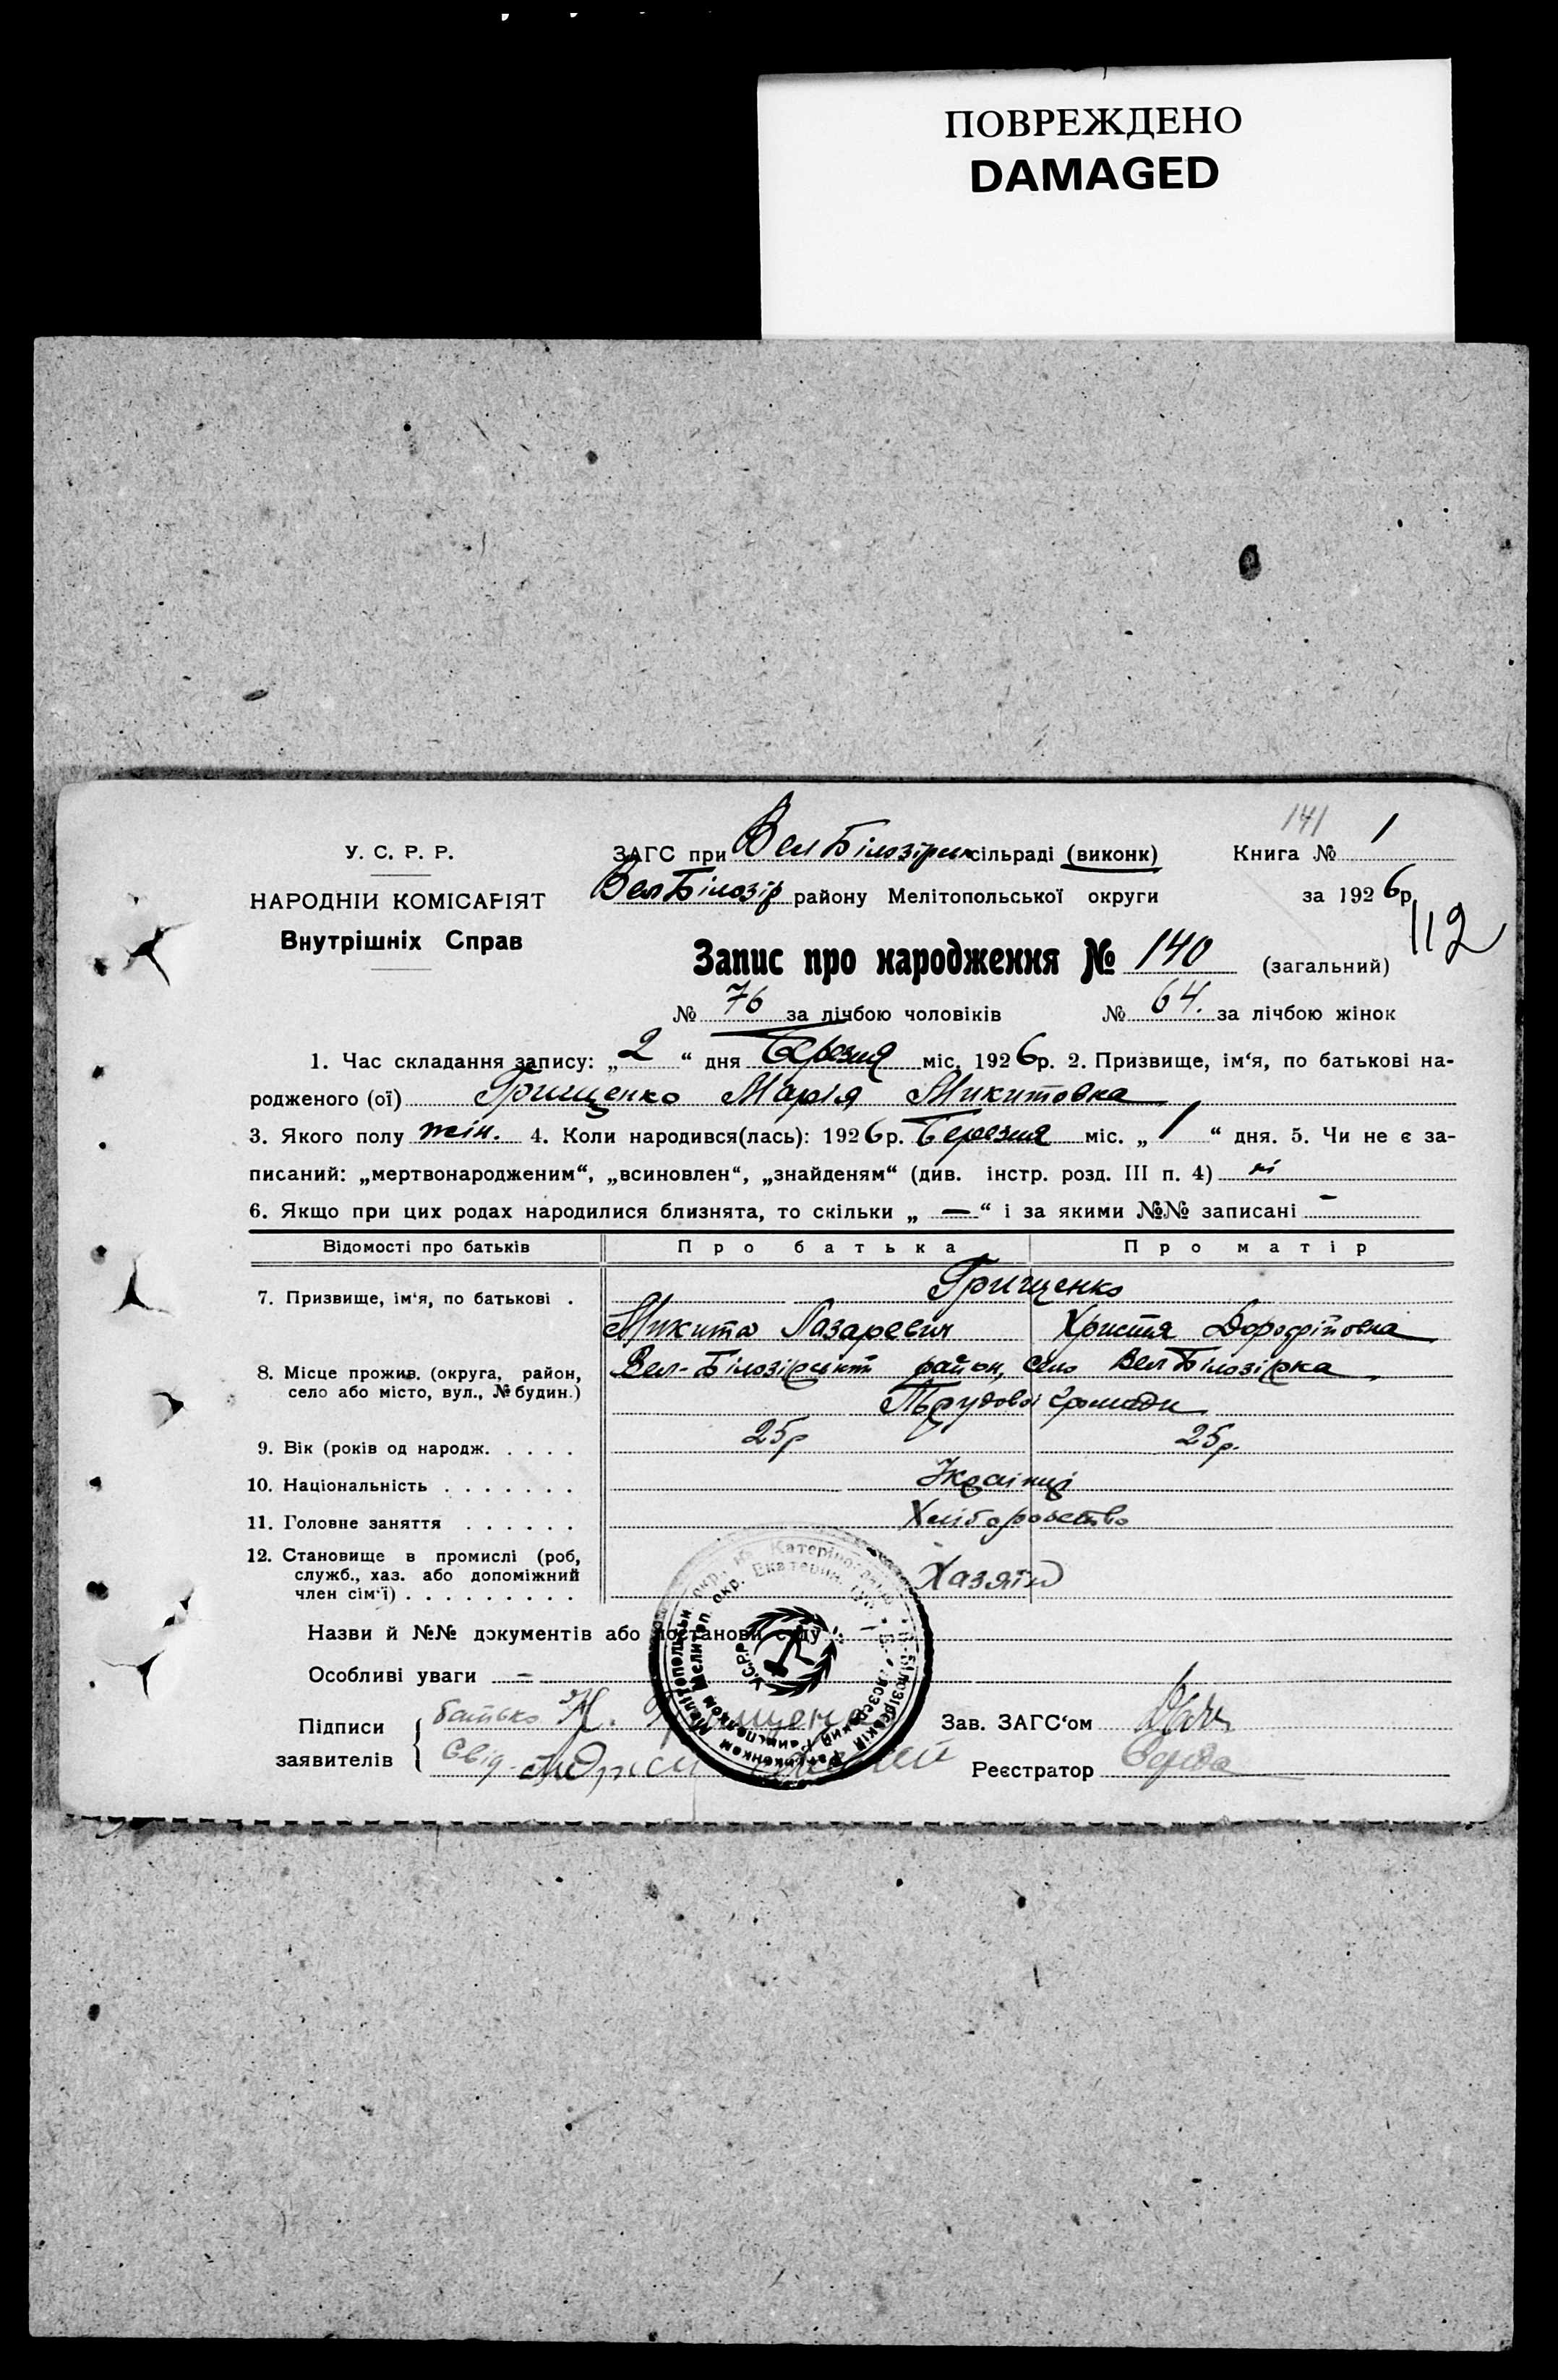 ПОВРЕЖДЕНО
DAMAGED
141
У. С. Р. Р.
ЗАГС при Вел Білозірськ сільраді (виконк)
Книга № 1
НАРОДНІЙ КОМІСАРІЯТ
Вел Білозір району Мелітопольської округи
за 1926р.
Внутрішніх Справ
112
Запис про народження № 140 (загальний)
№ 76 за лічбою чоловіків № 64. за лічбою жінок
1. Час складання запису: „ 2 “ дня Березня міс. 1926р. 2. Призвище, ім‘я, по батькові на-
родженого (ої) Грищенко Марія Микитовна
3. Якого полу жін. 4. Коли народився(лась): 1926р. Березня міс. „ 1 “ дня. 5. Чи не є за-
писаний: „мертвонародженим“, „всиновлен“, „знайденям“ (див. інстр. розд. III п. 4) ні
6. Якщо при цих родах народилися близнята, то скільки „ — “ і за якими №№ записані —
Відомості про батьків Про батька Про матір
7. Призвище, ім‘я, по батькові . Грищенко
Микита Лазаревич Христя Дорофіївна
8. Місце прожив. (округа, район, село або місто, вул., № будин.) Вел-Білозірський район, село Вел Білозірка
Трудової громади
9. Вік (років од народж. . . . . 25р 25р.
10. Національність . . . . . . . Українці
11. Головне заняття . . . . . . Хліборобство
12. Становище в промислі (роб,
служб., хаз. або допоміжний
член сім‘ї) . . . . . . . . . Хазяїн
Назви й №№ документів або постанови суду
Особливі уваги —
Підписи батько Н. Грищенко Зав. ЗАГС‘ом
заявителів Свід. Реєстратор Середа